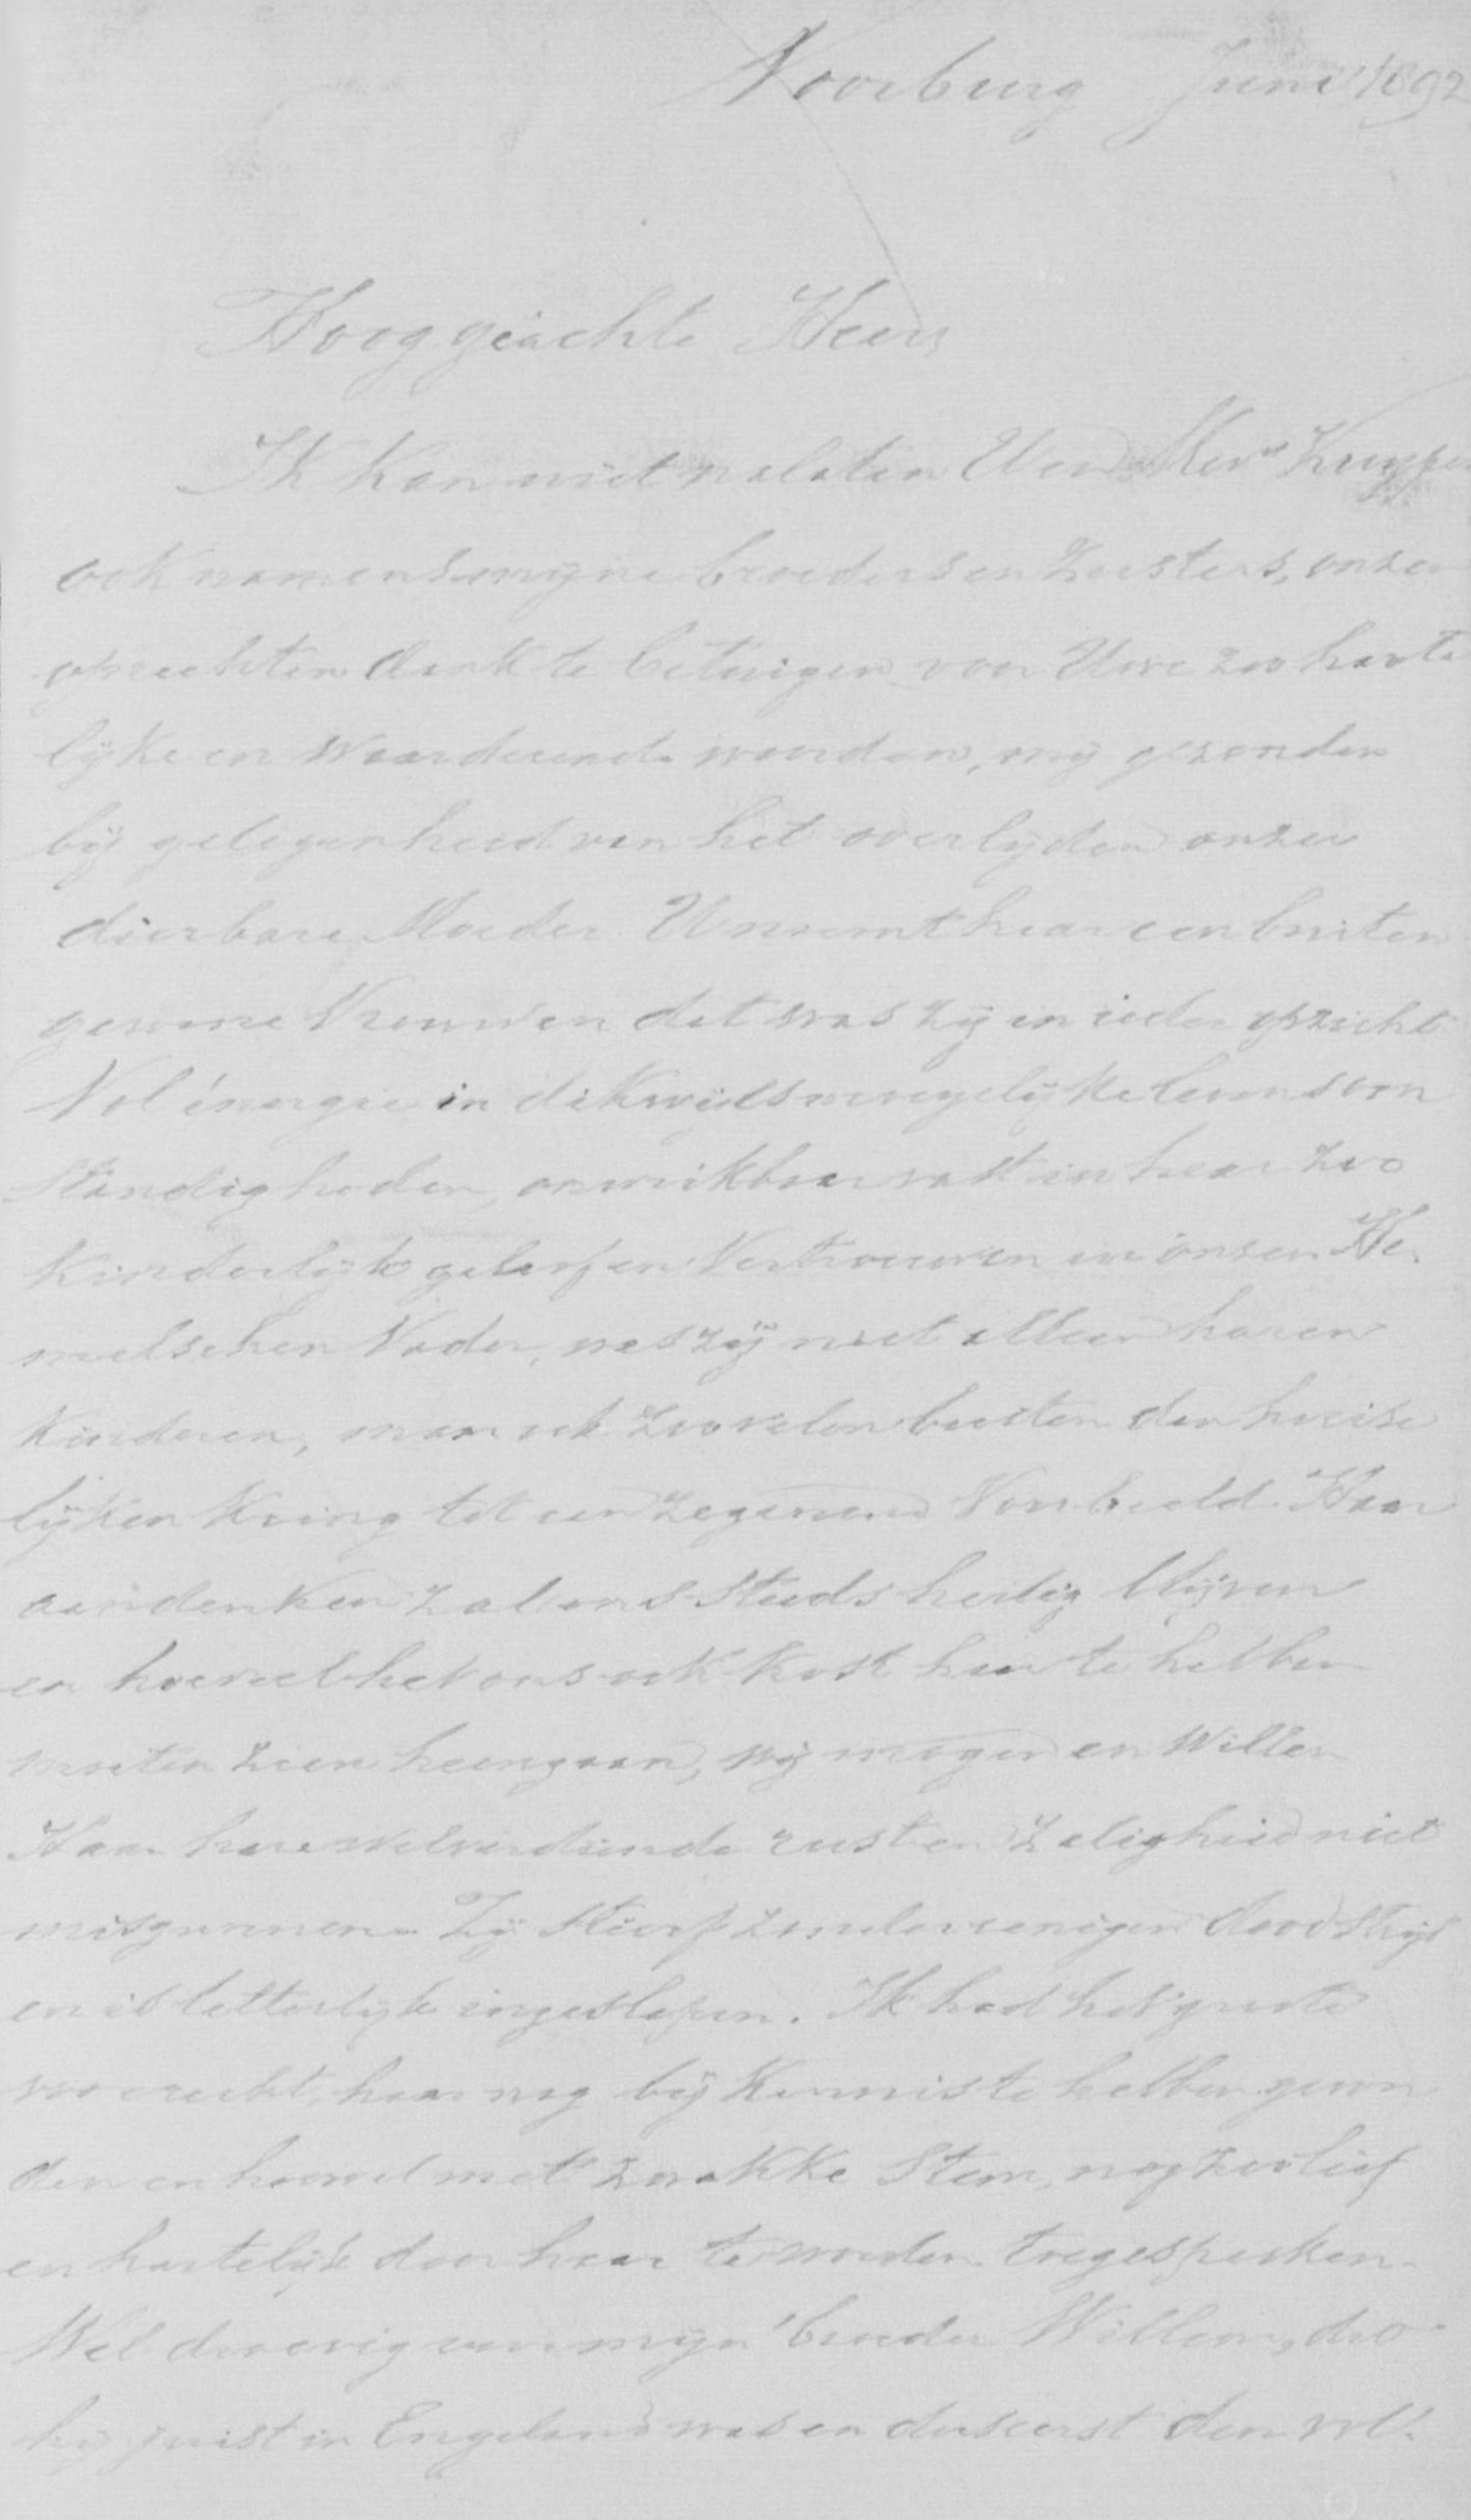 Voorburg Juni 1892
Hooggeachte Heer,
Ik kan niet nalaten U en Mevr Kuyper
ook namens mijne broeders en zusters, onzen
oprechten dank te betuigen voor Uwe zoo harte
lijke en waardeerende woorden, mij gezonden
bij gelegenheid van het overlijden onzer
dierbare Moeder. U noemt haar een buiten
gewone Vrouw en dat was zij in ieder opzicht
Vol énergie in dikwijls moeyelijke levensom
standigheden, onwrikbaar vast in haar zoo
Kinderlijk geloof en Vertrouwen in onzen He.
melschen Vader, was zij niet alleen haren
Kinderen, maar ook zoovelen buiten den huise
lijken Kring tot een zegenend Voorbeeld. Haar
aandenken zal ons steeds heilig blijven
en hoeveel het ons ook kost haar te hebben
moeten zien heengaan, wij mogen en willen
Haar hare welverdiende rust en Zaligheid niet
misgunnen. Zij stierf zonder eenigen doodstrijd
en is letterlijk ingeslapen. Ik had het groote
voorrecht, haar nog bij Kennis te hebben gevon
den en hoewel met zwakke Stem, nog zoo lief
en hartelijk door haar te worden toegesproken.
Wel droevig voor mijn broeder Willem, die
hij juist in Engeland was en dus eerst den vol.